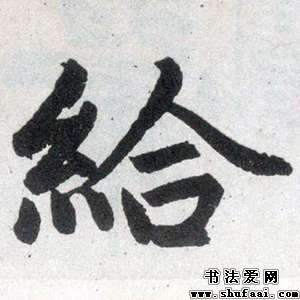 給
书法爱网
www.shufaai.com